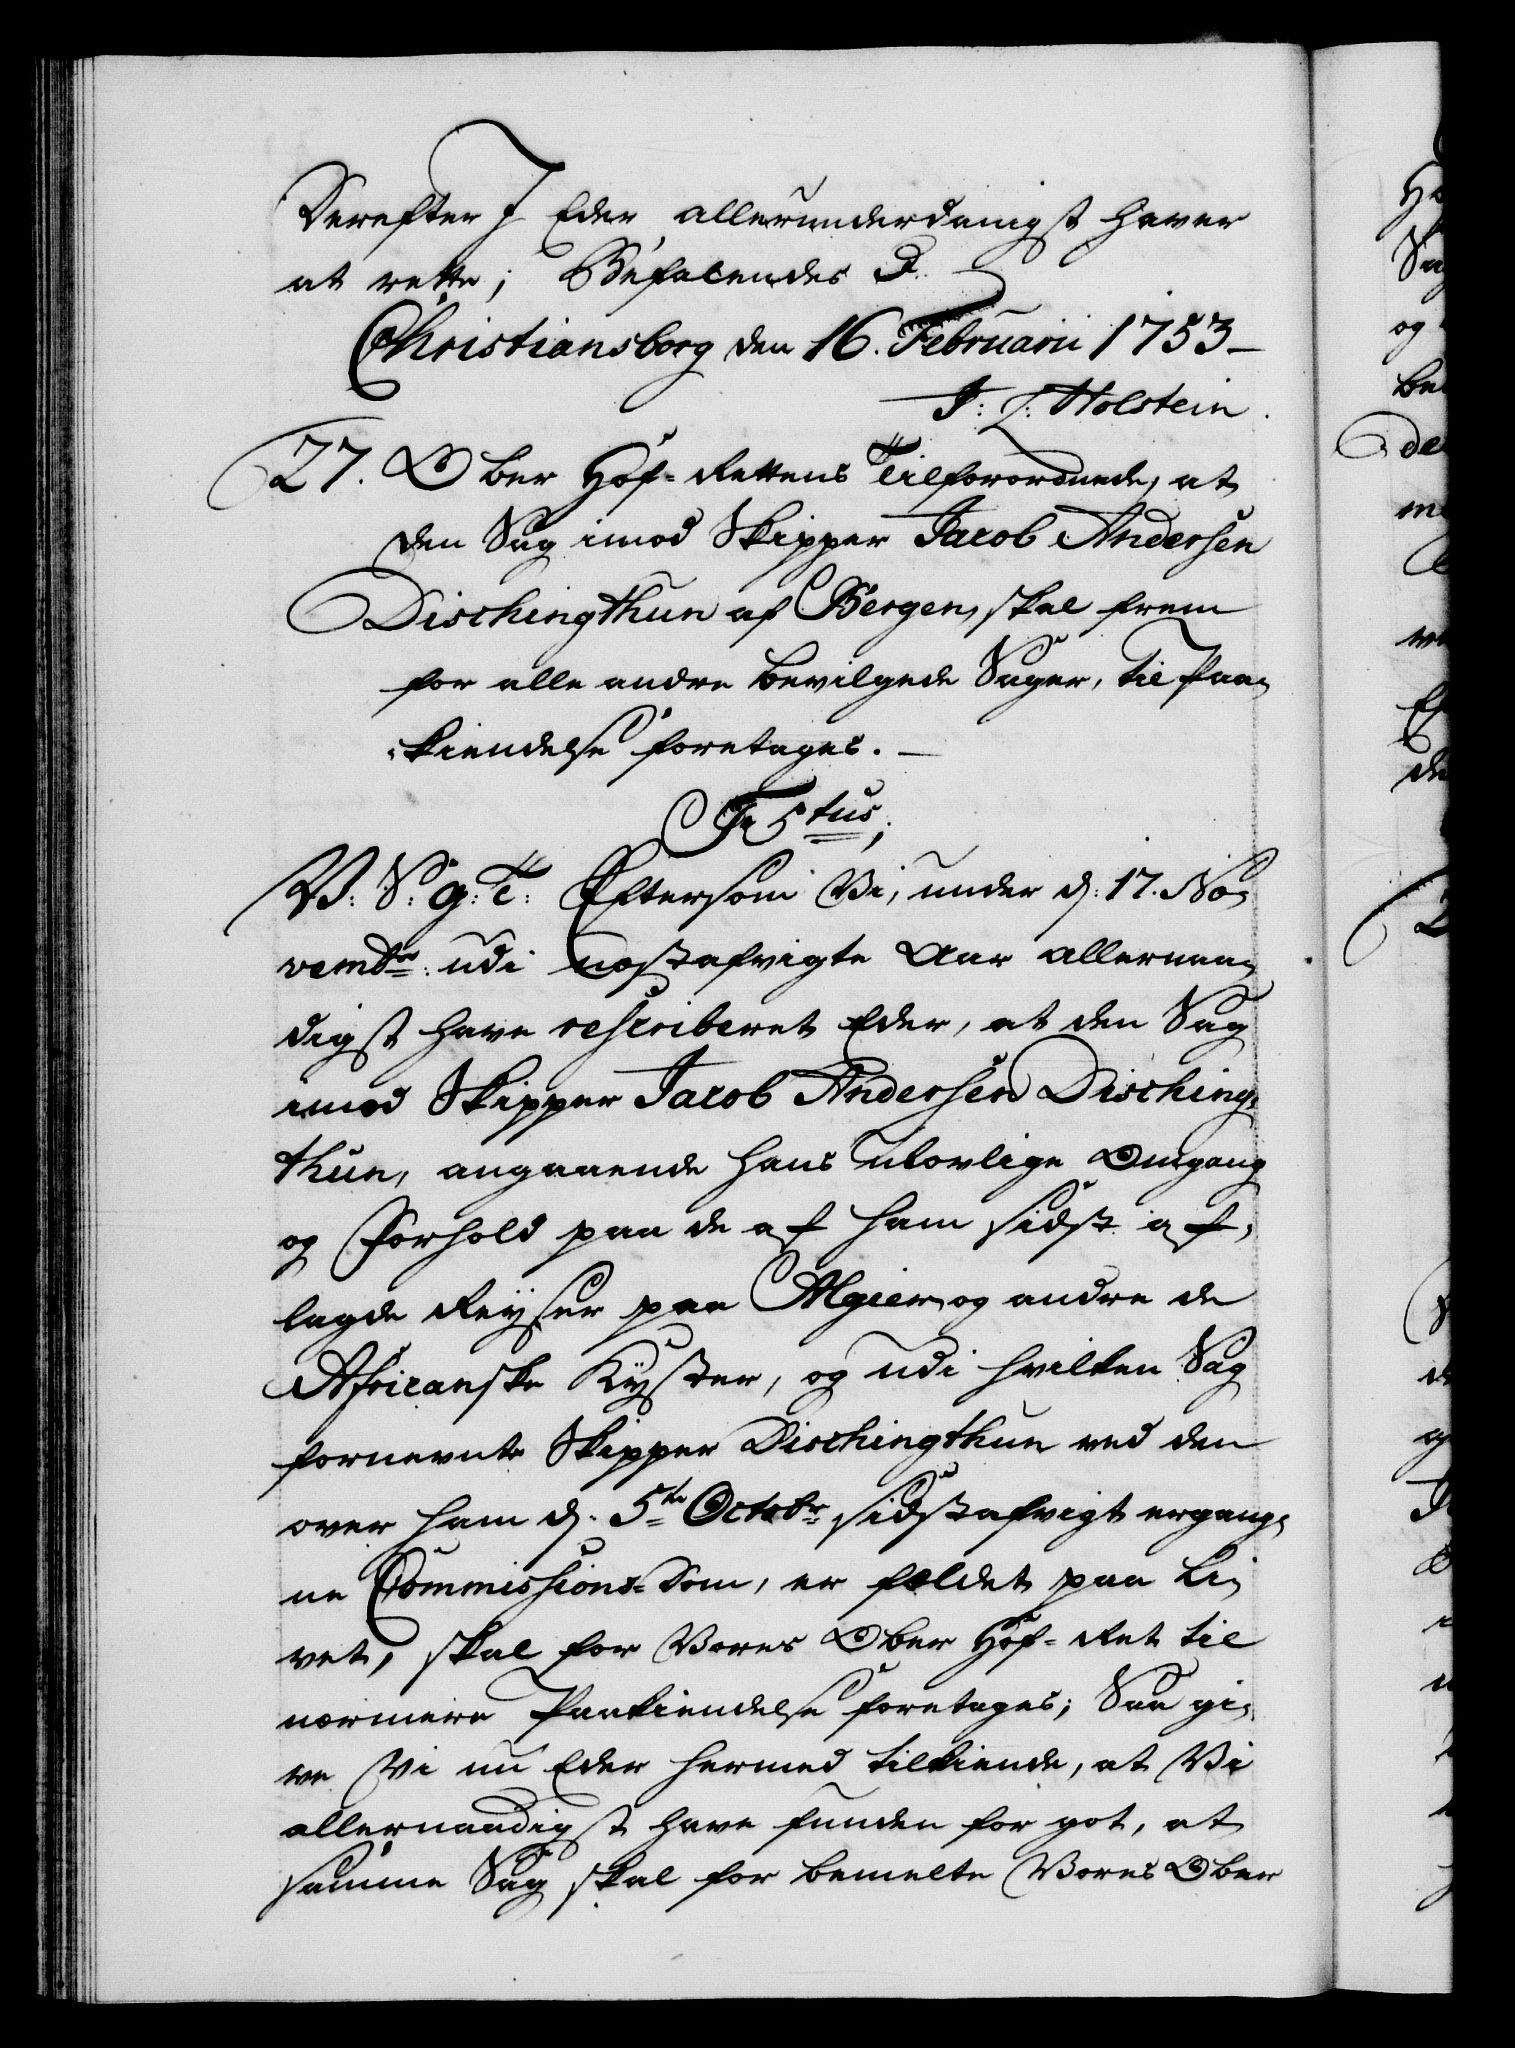 Derefter I Eder allerunderdanigst haver
at rette; Befalendes d.
Christiansborg den 16. Februarii 1753 –
J: L: Holstein.
27. Ober Hof-Rettens Tilforordnede, at
den Sag imod Skipper Jacob Andersen
Dischingthun af Bergen, skal frem
for alle andre bevilgede Sager, til Paa-
kiendelse foretages. –
F 5tus;
V: S: g: T: Eftersom Vi, under d: 17. No-
vembr: udi næstafvigte Aar allernaa-
digst have rescriberet Eder, at den Sag
imod Skipper Jacob Andersen Disching-
thun, angaaende hans ulovlige Omgang
og Forhold paa de af ham sidst af-
lagde Reyser paa Algier og andre de
Africanske Kyster, og udi hvilken Sag
fornevnte Skipper Dischingthun ved den
over ham d. 5te Octobr sidstafvigt ergang-
ne Commissions-Dom, er fældet paa Li-
vet, skal for Vores Ober Hof-Ret til
nærmere Paakiendelse foretages; Saa gi-
ve Vi nu Eder hermed tilkiende, at Vi
allernaadigst have funden for got, at
samme Sag skal for bemelte Vores Ober